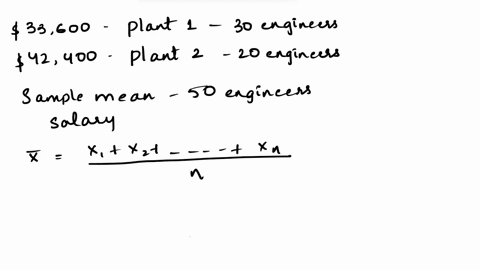 $33,600 - plant 1 - 30 engineers
$42,400 - plant 2 - 20 engineers
Sample mean - 50 engineers
salary
x̄ = x₁ + x₂ + - - - - + xₙ
n